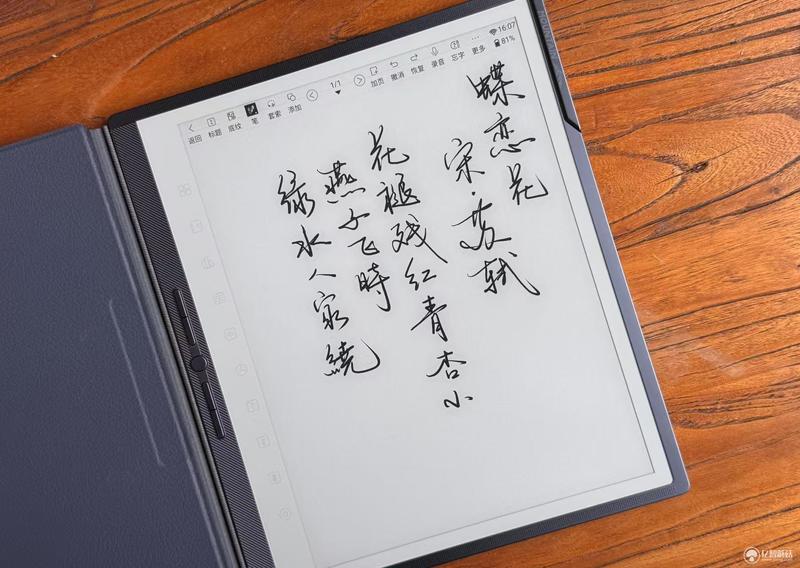 16:07
81%
返回 标题 底纹 笔 套索 添加 1/1 加页 撤消 恢复 录音 忘字 更多
蝶恋花
宋·苏轼
花褪残红青杏小
燕子飞時
绿水人家繞
亿智蘑菇